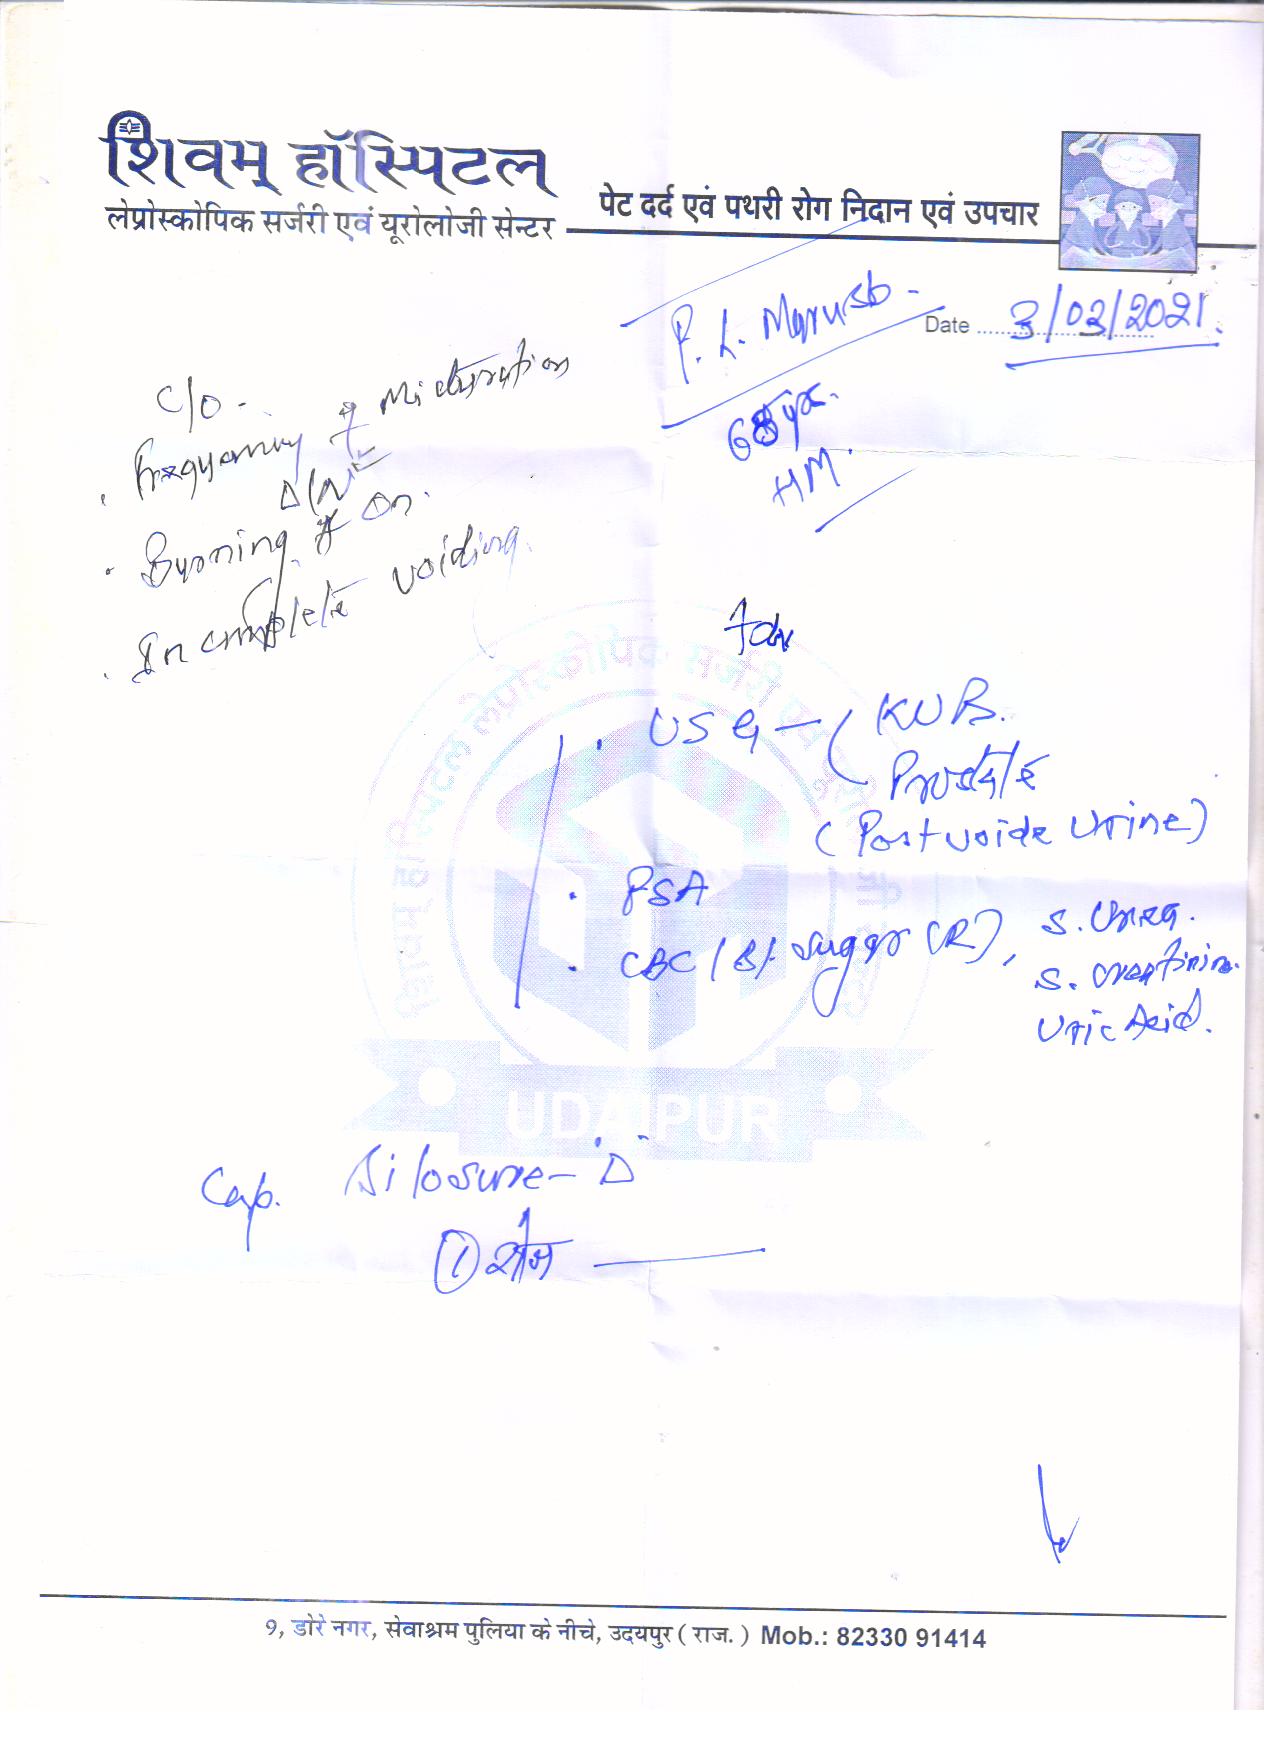 शिवम् हॉस्पिटल
लेप्रोस्कोपिक सर्जरी एवं यूरोलोजी सेन्टर
पेट दर्द एवं पथरी रोग निदान एवं उपचार
Date 3/03/2021.
P. L.
68 yr.
HM.
C/O -
. Frequency of Micturation
D/N
. Burning of On.
. Incomplete voiding.
Adv
. USG - ( KUB.
Prostate
(Post voide Urine)
. PSA
. CBC / B/. Suggar (R), S. Urea.
S. Creatinin.
Uric Acid.
शिवम् हॉस्पिटल लेप्रोस्कोपिक सर्जरी एवं
UDAIPUR
Cap. Silosure - D
① रोज
9, डोरे नगर, सेवाश्रम पुलिया के नीचे, उदयपुर ( राज. ) Mob.: 82330 91414